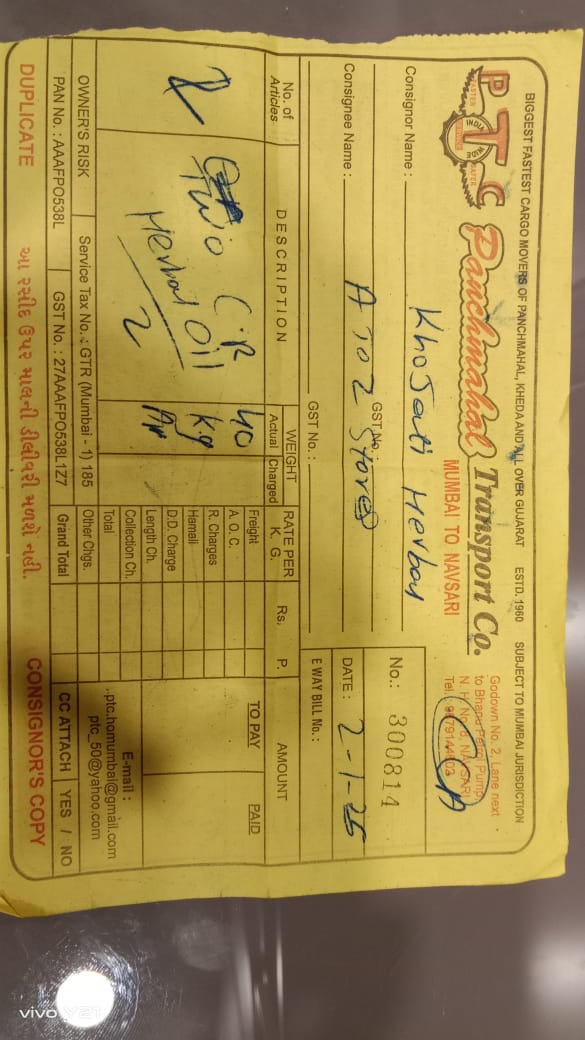 BIGGEST FASTEST CARGO MOVERS OF PANCHMAHAL, KHEDA AND ALL OVER GUJARAT ESTD. 1960 SUBJECT TO MUMBAI JURISDICTION
PTC
INDIA WIDE
Panchmahal Transport Co.
MUMBAI TO NAVSARI
Godown No. 2, Lane next
to Bhanu Petrol Pump,
N. H. No. 8, NAVSARI
Tel.:
Consignor Name : Khojati Herbal
GST No.:
No.: 300814
Consignee Name : A TO Z Stores
GST No. :
DATE : 2-1-25
E WAY BILL No. :
No. of Articles
DESCRIPTION
WEIGHT
Actual Charged
RATE PER K. G.
Rs. P.
AMOUNT
TO PAY PAID
2
Two C.R
Herbal Oil
2
40
kg
Freight
A.O.C.
R. Charges
Hamali
D.D. Charge
Length Ch.
Collection Ch.
Total
Other Chgs.
Grand Total
E-mail :
ptc.homumbai@gmail.com
ptc_50@yahoo.com
OWNER'S RISK
Service Tax No. : GTR (Mumbai - 1) 185
PAN No. : AAAFPO538L
GST No. : 27AAAFPO538L1Z7
CC ATTACH YES / NO
DUPLICATE
આ રસીદ ઉપર માલની ડીલીવરી મળશે નહી.
CONSIGNOR'S COPY
vivo Y21